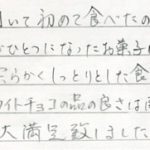 いて初めて食べたの
がひとつになったお菓子
らかくしっとりとした食
ワイトチョコの品の良さは
大満足致しました